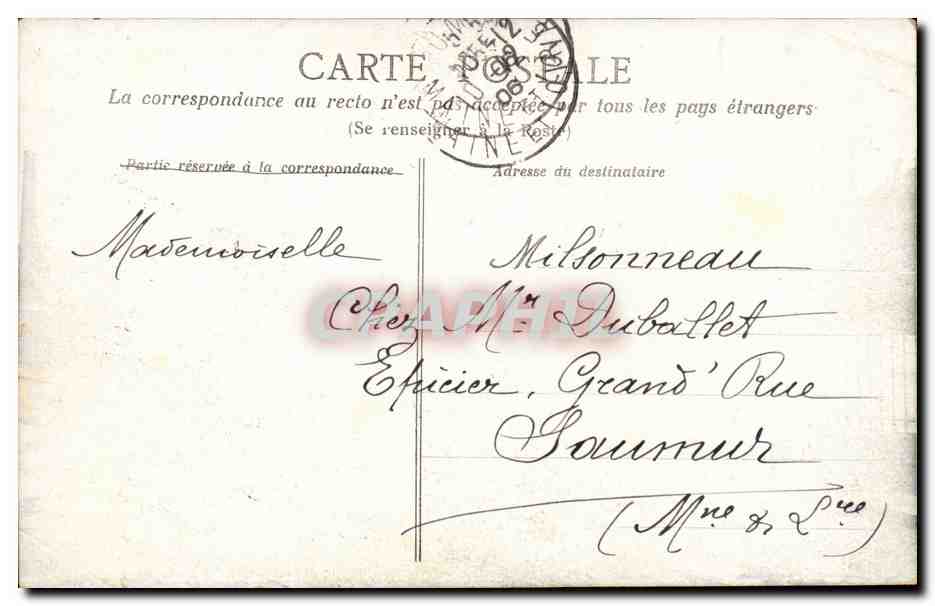 CARTE POSTALE
La correspondance au recto n'est pas acceptée par tous les pays étrangers
(Se renseigner à la Poste)
Partie réservée à la correspondance
Adresse du destinataire
Mademoiselle Milsonneau
Chez Mr Duballet
Epicier, Grand' Rue
Saumur
(Mne & Lre)
MAINE ET